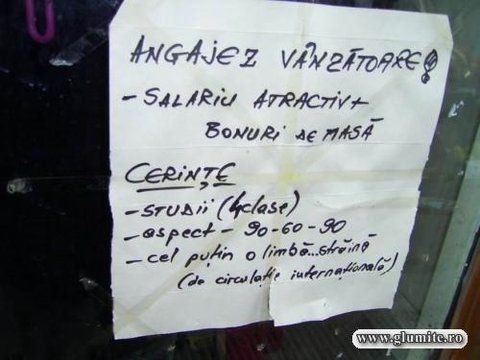 ANGAJEZ VÂNZĂTOARE!
- SALARIU ATRACTIV +
BONURI DE MASĂ
CERINȚE
- STUDII (4clase)
- aspect - 90-60-90
- cel puțin o limbă...străină
(de circulație internațională)
www.glumite.ro